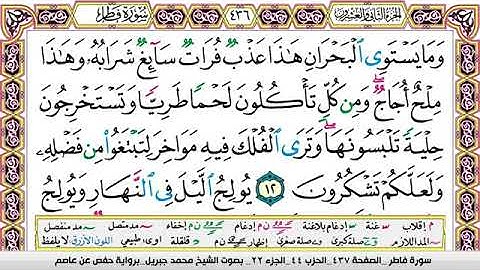 الجزء الثاني والعشرون ٤٣٦ سورة فاطر
وَمَا يَسْتَوِي الْبَحْرَانِ هَٰذَا عَذْبٌ فُرَاتٌ سَائِغٌ شَرَابُهُ وَهَٰذَا
مِلْحٌ أُجَاجٌ ۖ وَمِن كُلٍّ تَأْكُلُونَ لَحْمًا طَرِيًّا وَتَسْتَخْرِجُونَ
حِلْيَةً تَلْبَسُونَهَا ۖ وَتَرَى الْفُلْكَ فِيهِ مَوَاخِرَ لِتَبْتَغُوا مِن فَضْلِهِ
وَلَعَلَّكُمْ تَشْكُرُونَ ١٢ يُولِجُ اللَّيْلَ فِي النَّهَارِ وَيُولِجُ
م إقلاب غنة إدغام بلاغنة إدغام إخفاء مد متصل مد منفصل
المد اللازم صلة كبرى صلة صغرى إظهار قلقلة اوى طبيعي اللون الأزرق لا يلفظ
سورة فاطر _الصفحة ٤٣٧_ الحزب ٤٤ _الجزء ٢٢_ بصوت الشيخ محمد جبريل_برواية حفص عن عاصم